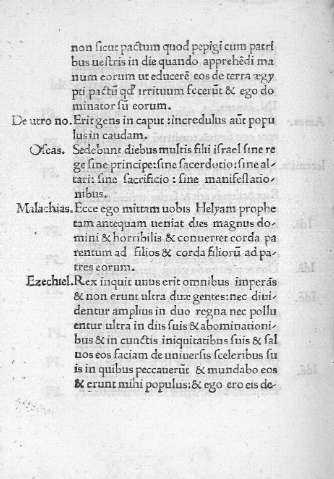 non sicut pactum quod pepigi cum patri
bus uestris in die quando apprehēdi ma
num eorum ut educerē eos de terra ægy
pti pactū qđ irritum fecerūt & ego do
minator sū eorum.
De utro no. Erit gens in caput: incredulus aūt popu
lus in caudam.
Oseas. Sedebunt diebus multis filii israel sine re
ge sine principe: sine sacerdotio: sine al-
tari: sine sacrificio: sine manifestatio-
nibus.
Malachias. Ecce ego mittam uobis Helyam prophe
tam antequam ueniat dies magnus do-
mini & horribilis & conuertet corda pa
rentum ad filios & corda filiorū ad pa-
tres eorum.
Ezechiel. Rex inquit unus erit omnibus imperās
& non erunt ultra duæ gentes: nec diui
dentur amplius in duo regna nec pollu
entur ultra in diis suis & abominationi-
bus & in cunctis iniquitatibus suis & sal
uos eos faciam de uniuersis sceleribus su
is in quibus peccauerūt & mundabo eos
& erunt mihi populus: & ego ero eis de-